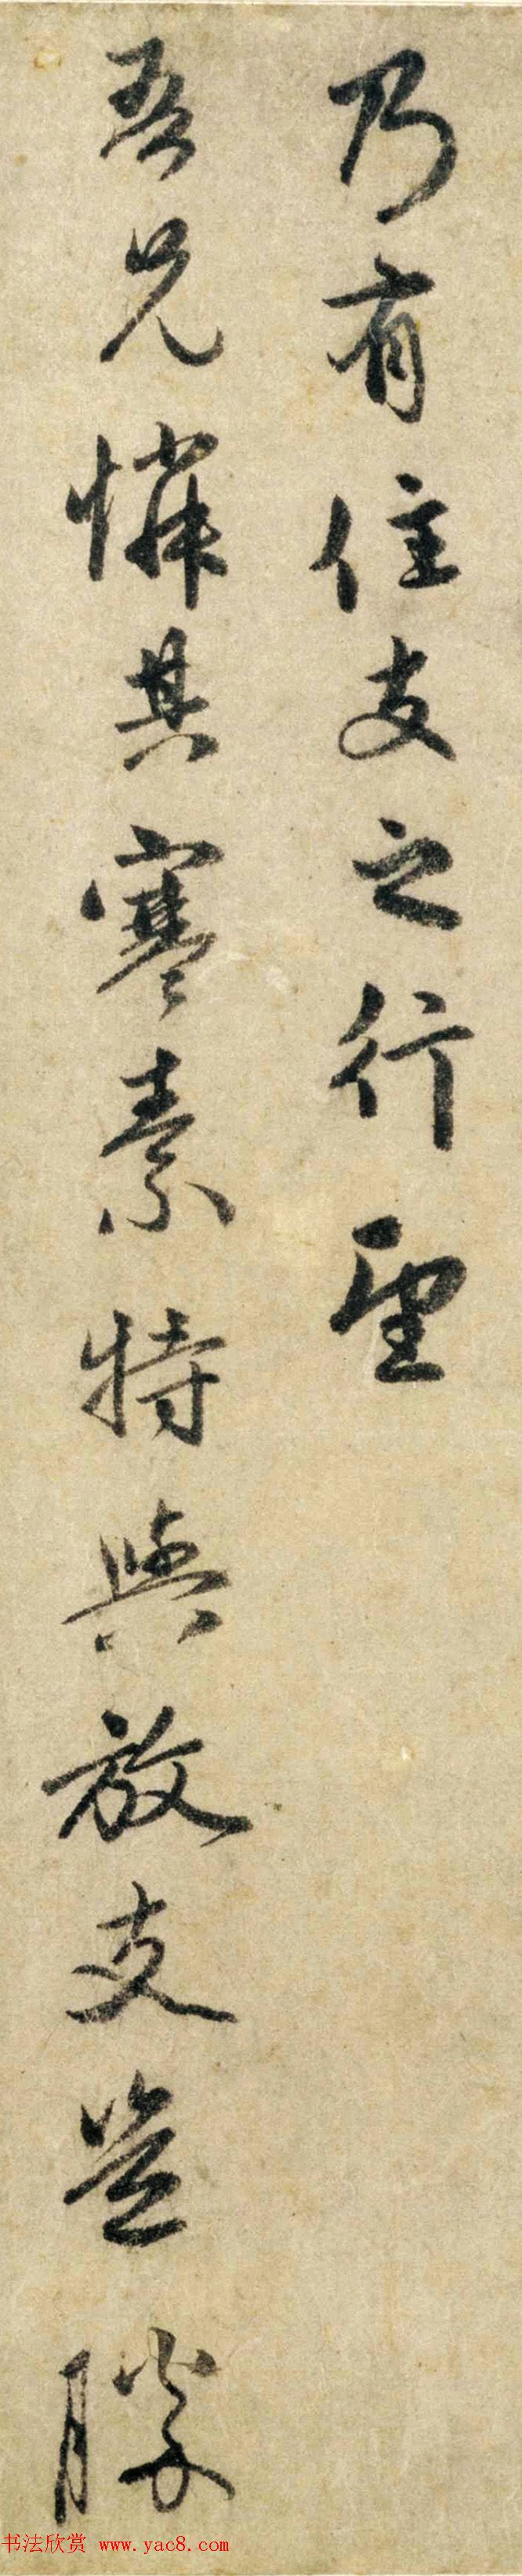 乃有住支之行望
吾兄憐其寒素特與放支豈勝
书法欣赏 www.yac8.com